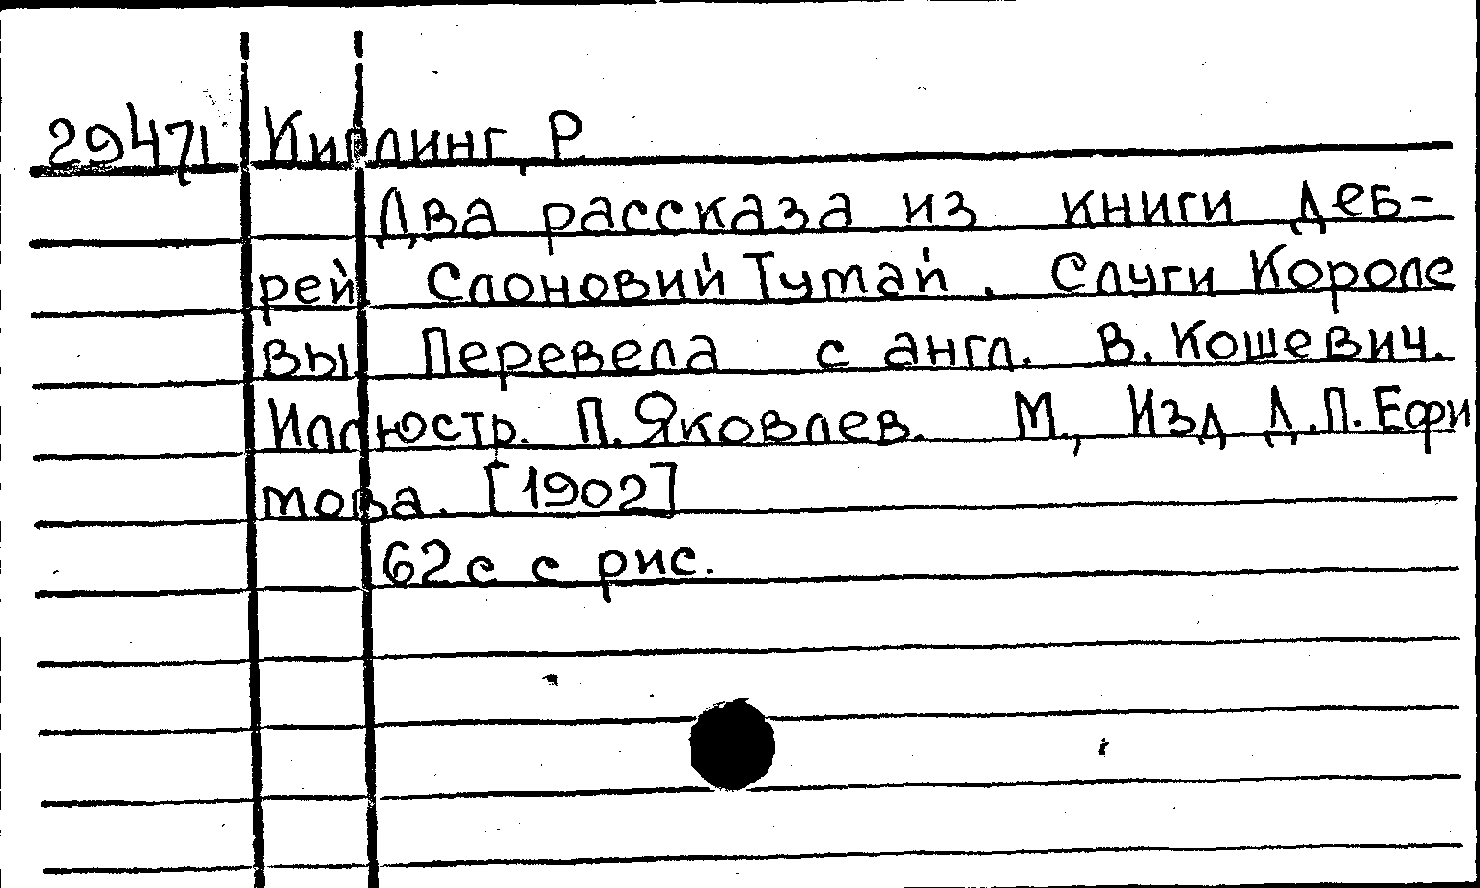 29471 Киплинг, Р.
Два рассказа из книги деб-
рей Слоновий Тумай. Слуги Короле
вы Перевела с англ. В. Кошевич.
Иллюстр. П. Яковлев. М., Изд Д.П. Ефи
мова. [1902]
62 с с рис.